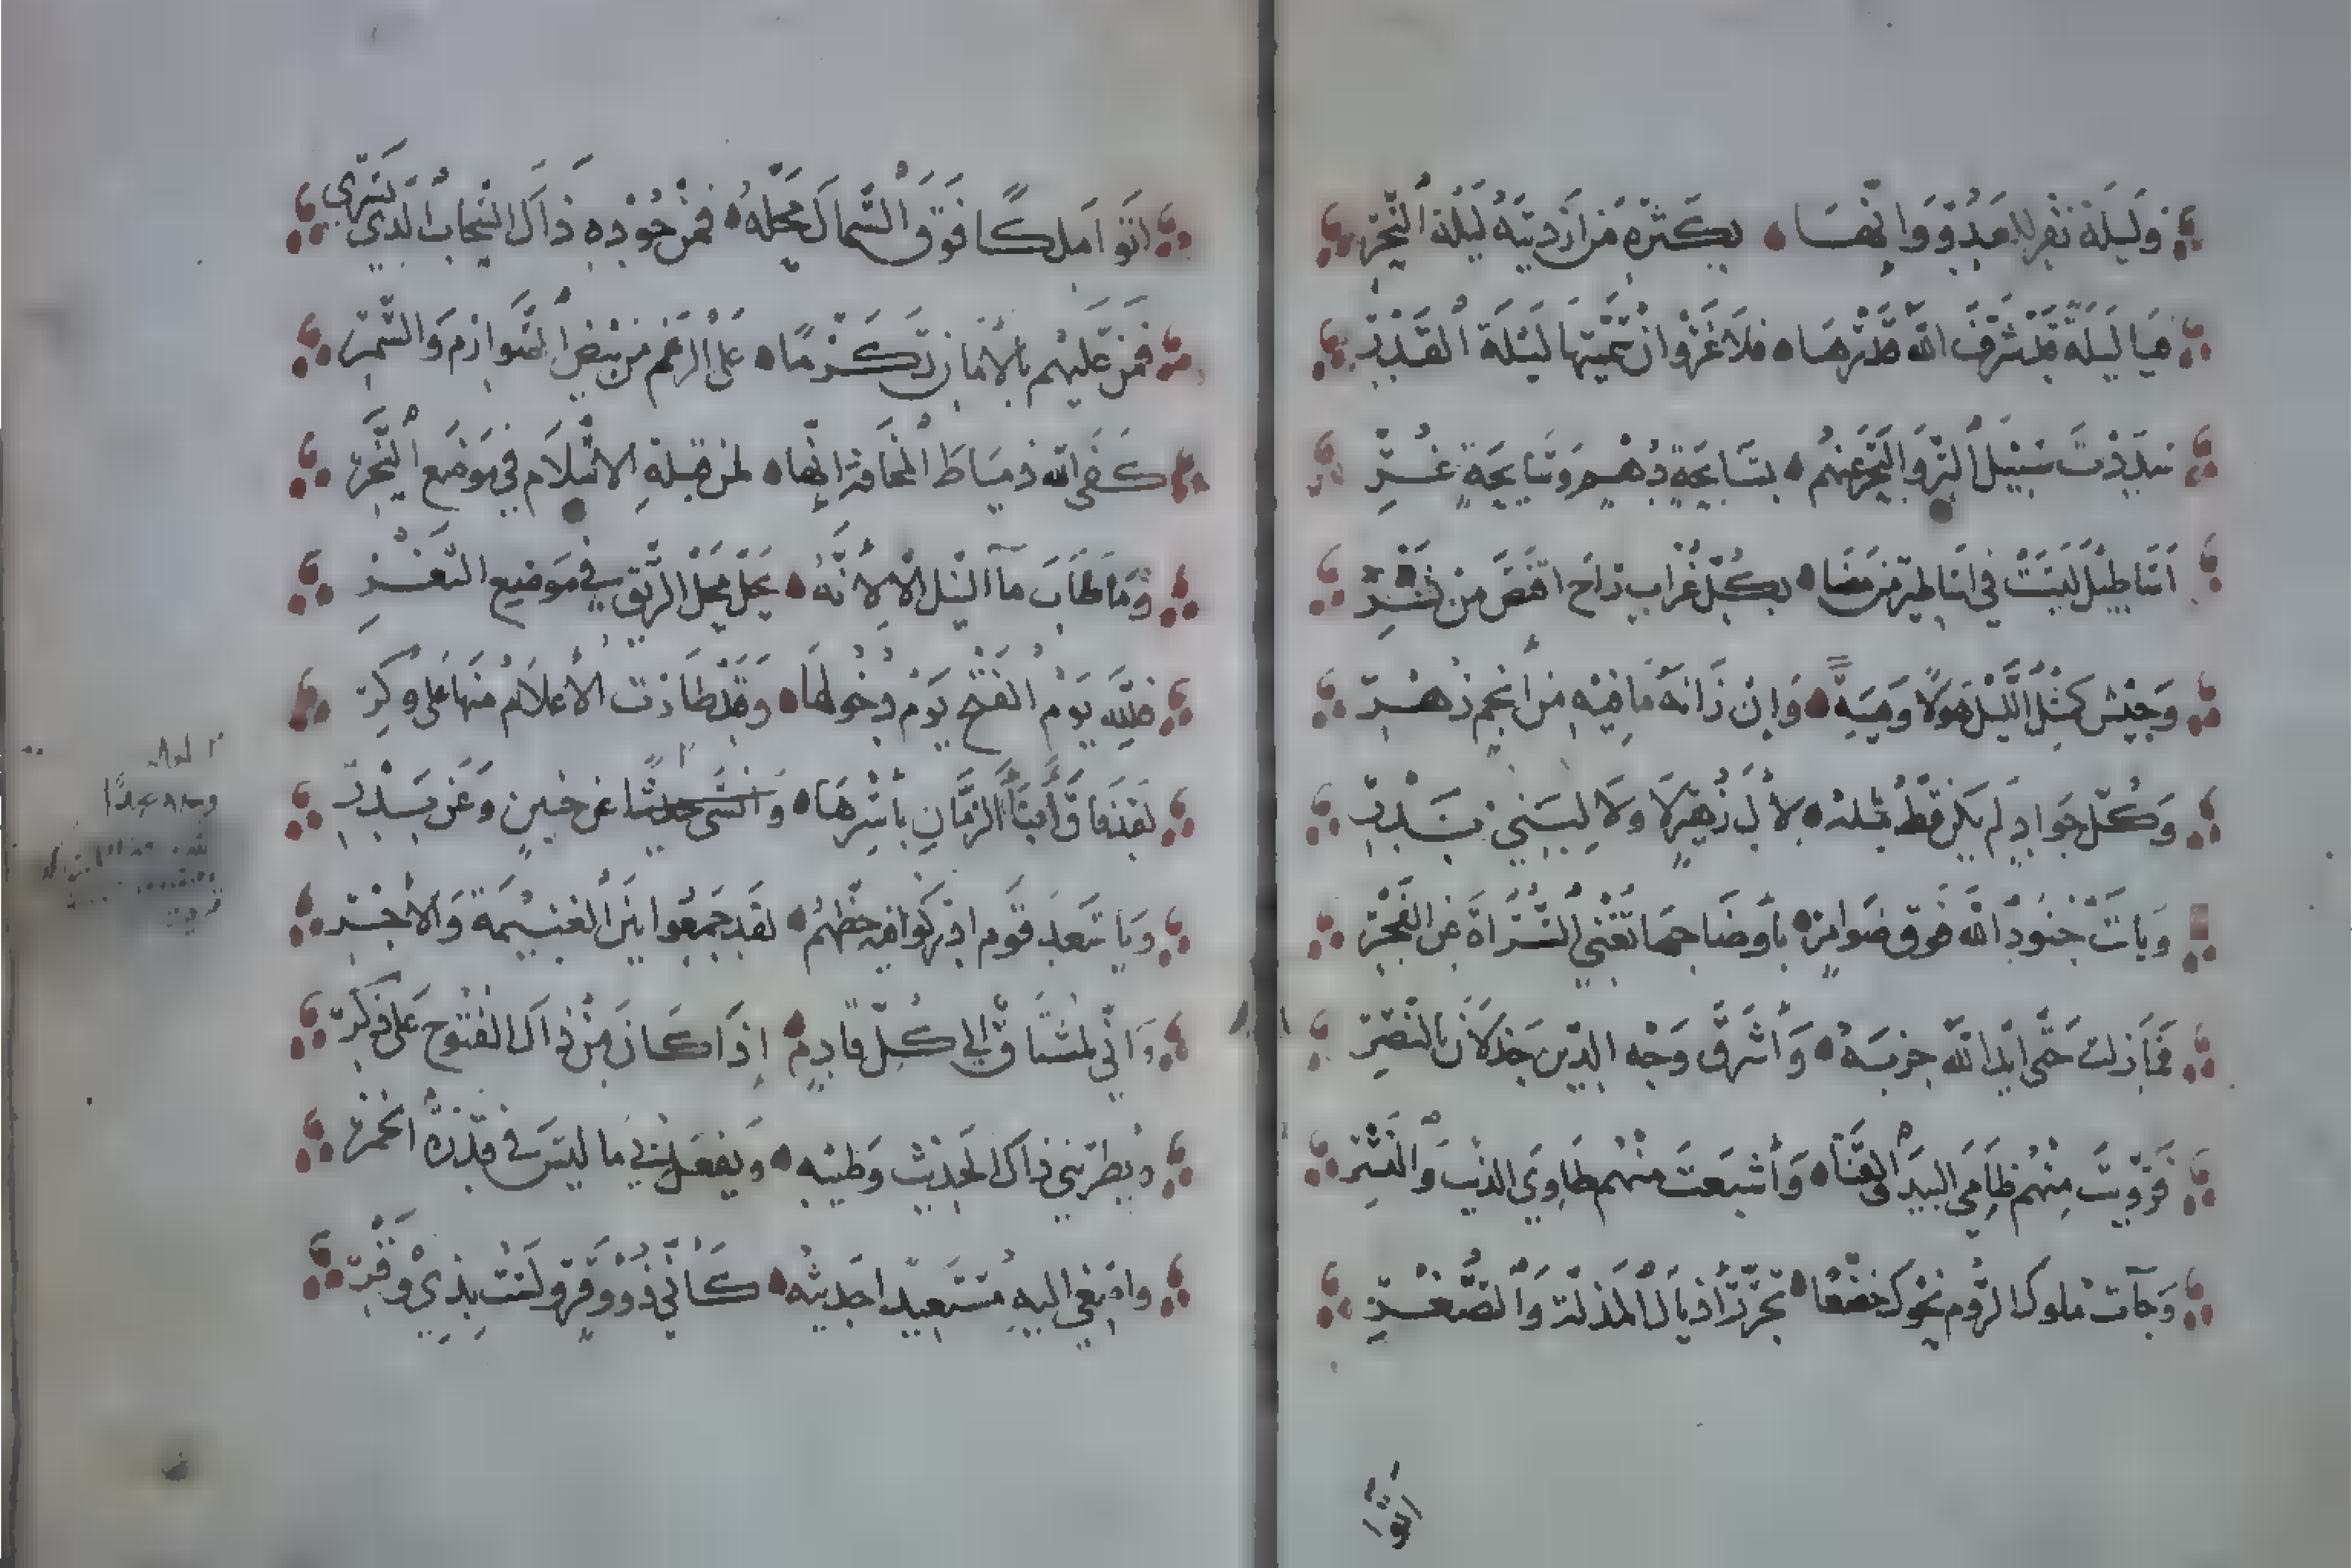 وَلَيلَة نَفرٍ للعَدُوّ وَانّهَا بكَثرَةِ مَن اَرْدَيتَهُ لَيْلَةُ النَّحْرِ
فيَا لَيلَةً قَدْ شَرَّفَ اللهُ قَدْرَهَا فَلَا غَرْوَ انْ سَمَّيتهَا لَيْلَةَ القَدْرِ
سَدَدْتَ سَبِيْلَ البَرِّ وَالبَحرِ عَنهُم بسَابحَةٍ دُهْمٍ وَسَابحَةٍ غُرِّ
اَسَاطِيْلُ لَيسَتْ في اسَاطيرِ مَن مَضَا بكُلِّ غُرابٍ رَاحَ اقْنَصَ مِنْ صَقْرِ
وَجَيْش كَمِثْلِ اللَّيْلِ هَوْلًا وَهَيبَةً وَاِنْ زَانَهُ مَا فِيْهِ مِنْ اَنْجُمٍ زُهْرِ
وَكُلّ جَوَادٍ لَم يَكُن قَطُّ مثلهُ لاٰلِ زُهَيْرٍ لَا وَلَا لِبَنِي بَدْرِ
وَبَاتَتْ جُنُوْدُ اللهِ فَوقَ ضَوامِرٍ باَوضَاحِهَا تُغْنِي السُّرَاةَ عَنِ الفَجْرِ
فَمَا زِلتَ حَتَّى ايَّدَ اللهُ حِزبَهُ وَاَشْرَقَ وَجْه الدِّين جَذلَانَ بالنَّصْرِ
فَرَوَّيتَ مِنْهُم ظَامِيَ البيدِ وَالقَنَا وَاَشْبَعتَ مِنْهُم طَاوِيَ الذئبِ وَالنَّسْرِ
وَجَآت مُلوكُ الرُّومِ نحوَكَ خضَّعًا تُجَرِّرُ اَذْيَالَ المَذلَّة وَالصُّغْرِ
اتَوا
اتَوا مَلِكًا فَوقَ السّمَاكِ مَحَلّهُ فَمِنْ جُوْدِهِ ذَاكَ السَّحَابُ الَّذِي يَسْرِي
فَمَنَّ عَلَيْهِم بالاَمَانِ تَكَرُّمًا عَلَى الرّغمِ مِن بيْضِ الصَّوارِمِ وَالسُّمْرِ
كَفَى الله دمْيَاطَ المخَافَةَ انّهَا لمن قِبلَةِ الاسْلَامِ في مَوضع النَّحْرِ
وَمَا طَابَ مَآ النّيْلِ الَّا لاَنَّهُ يَحُلُّ مَحَلَّ الرِّيْقِ في مَوْضِعِ الثَّغْرِ
فلِلّه يَوْمُ الفَتْحِ يَوْمُ دُخُولِهَا وَقَدْ طَارَتِ الاَعْلَامُ مِنهَا عَلَى وَكْرِ
لَقَد فَاقَ اَيّامَ الزَّمَانِ باَسْرِهَا عن حُنينٍ وَعَنْ بَدْرِ
وَيَا سَعدَ قَومٍ ادْرَكُوا فيهِ حَظّهُم لَقَد جَمَعُوا بَيْنَ الغنِيْمَةِ وَالاجْرِ
وَانّي لمُشتَاقٌ إلى كُلِّ قَادِمٍ اِذَا كَانَ مِنْ ذاكَ الفُتُوحِ عَلَى ذِكْرِ
وَيُطربُنِي ذاكَ الحَدِيْثُ وَطيْبُهُ وَيَفْعَلُ بي مَا لَيسَ في قُدْرَةِ الخَمْرِ
وَاصْغِي اليهِ مُسْتَعيدًا حَديثَهُ كَأنّي ذُو وَقْرٍ وَلَسْتُ بِذِي وَقْرِ